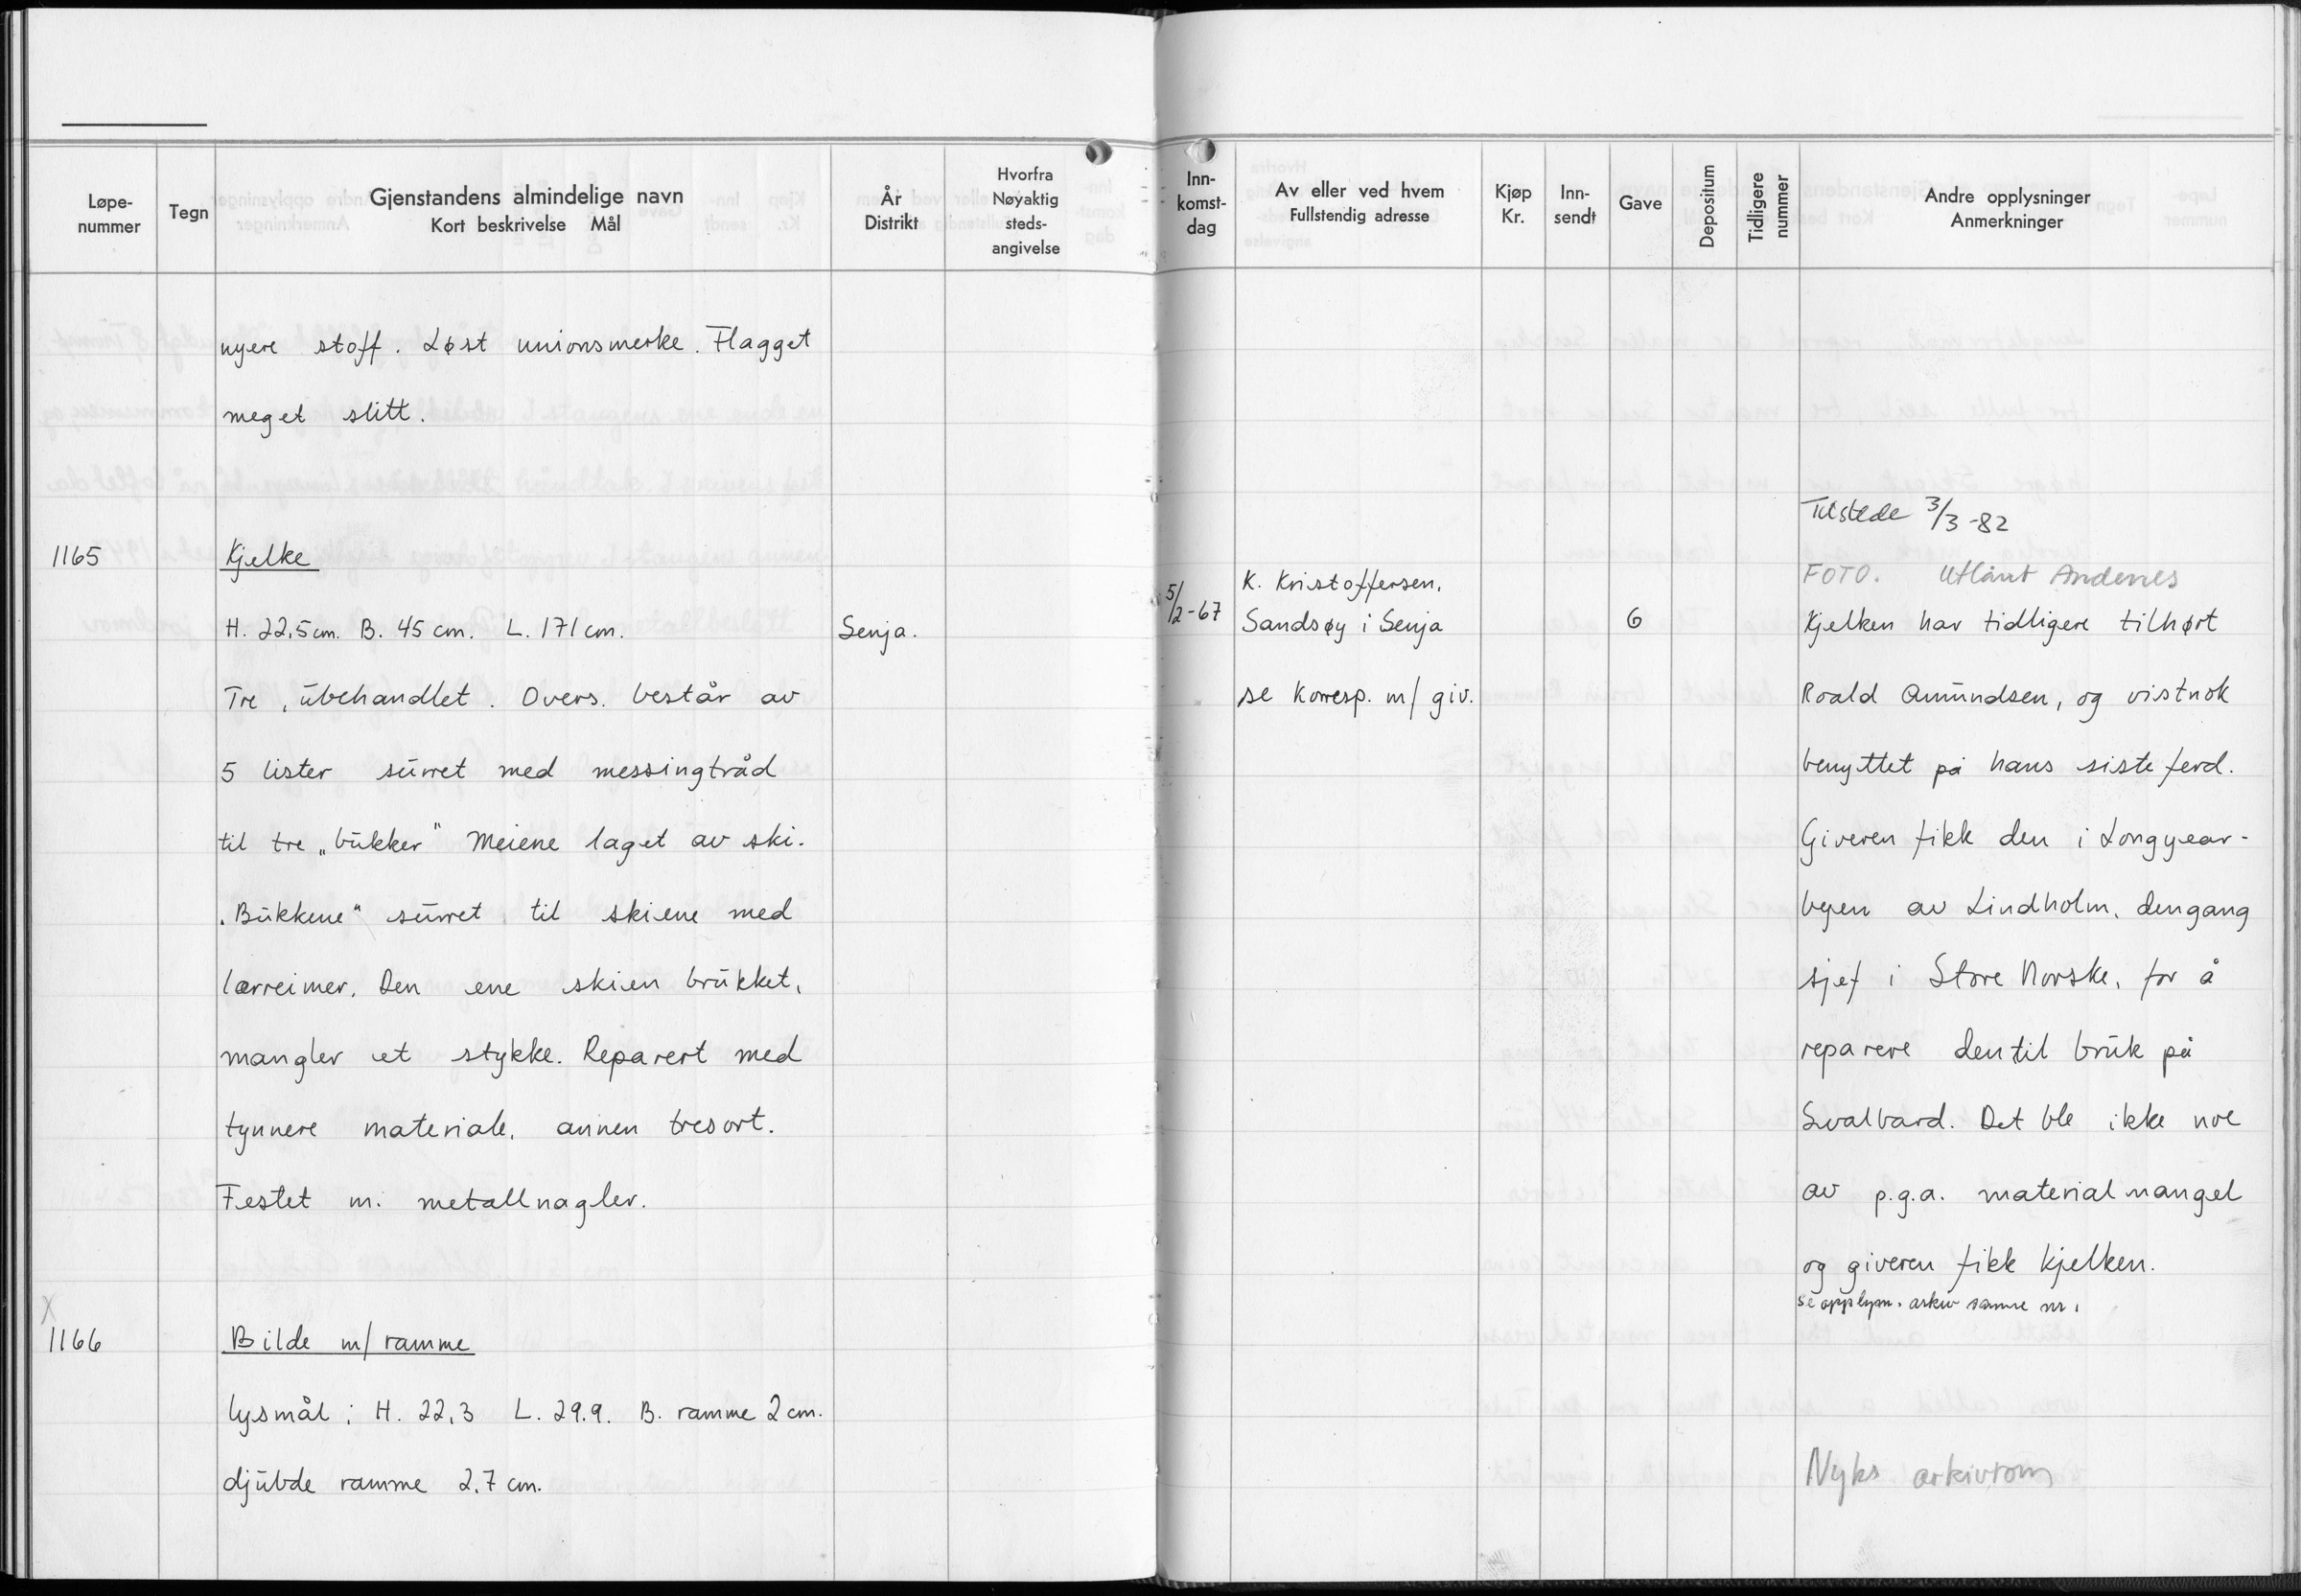 Løpe-
nummer
Tegn
Gjenstandens almindelige navn
Kort beskrivelse Mål
År
Distrikt
Hvorfra
Nøyaktig
steds-
angivelse
nyere stoff. Løst unionsmerke. Flagget
meget slitt.
1165
Kjelke
H. 22,5 cm. B. 45 cm. L. 171 cm.
Senja.
Tre, ubehandlet. Overs. består av
5 lister surret med messingtråd
til tre „bukker" Meiene laget av ski.
„Bukkene" surret til skiene med
lærreimer. Den ene skien brukket,
mangler et stykke. Reparert med
tynnere materiale, annen tresort.
Festet m. metallnagler.
X
1166
Bilde m/ ramme
lysmål: H. 22,3 L. 29.9. B. ramme 2 cm.
djubde ramme 2,7 cm.
Inn-
komst-
dag
Av eller ved hvem
Fullstendig adresse
Kjøp
Kr.
Inn-
sendt
Gave
Depositum
Tidligere
nummer
Andre opplysninger
Anmerkninger
Tilstede 3/3-82
FOTO. Utlånt Andenes
5/2-67
K. Kristoffersen,
Sandsøy i Senja
G
Kjelken har tidligere tilhørt
se korresp. m/ giv.
Roald Amundsen, og vistnok
benyttet på hans siste ferd.
Giveren fikk den i Longyear-
byen av Lindholm, dengang
sjef i Store Norske, for å
reparere den til bruk på
Svalbard. Det ble ikke noe
av p.g.a. materialmangel
og giveren fikk kjelken.
se opplysn. arkiv samme nr.
Nyks arkivrom